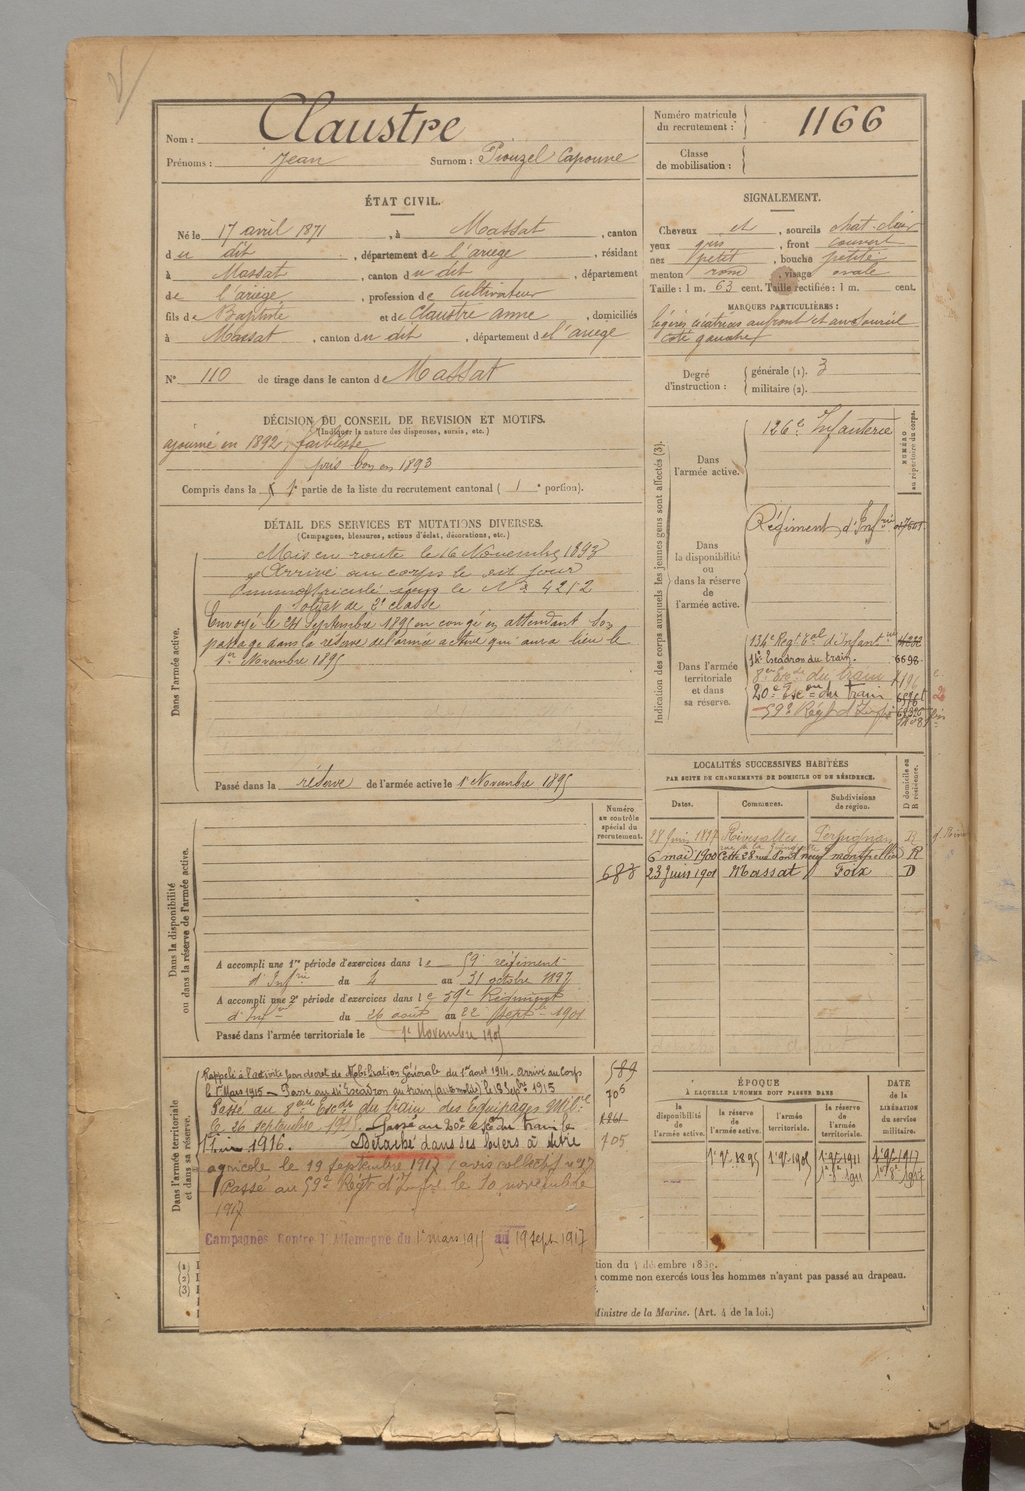 Nom : Claustre
Prénoms : Jean Surnom : Piouzel Capoune
Numéro matricule du recrutement : 1166
Classe de mobilisation :
ÉTAT CIVIL.
Né le 17 avril 1871, à Massat, canton
du dit, département de l'ariège, résidant
à Massat, canton du dit, département
de l'ariège, profession de Cultivateur
fils de Baptiste et de Claustre anne, domiciliés
à Massat, canton du dit, département de l'ariege
N° 110 de tirage dans le canton de Massat
SIGNALEMENT.
Cheveux et, sourcils chat-clair
yeux gris, front couvert
nez petit, bouche petite
menton rond, visage ovale
Taille : 1 m. 63 cent. Taille rectifiée : 1 m. cent.
MARQUES PARTICULIÈRES :
légères cicatrices au front et au sourcil
côté gauche
Degré d'instruction : générale (1). 3
militaire (2).
DÉCISION DU CONSEIL DE REVISION ET MOTIFS.
(Indiquer la nature des dispenses, sursis, etc.)
ajourné en 1892, faiblesse
puis bon en 1893
Compris dans la 1e partie de la liste du recrutement cantonal ( 1 e portion).
DÉTAIL DES SERVICES ET MUTATIONS DIVERSES.
(Campagnes, blessures, actions d'éclat, décorations, etc.)
Dans l'armée active.
Mis en route le 16 Novembre 1893
Arrivé au corps le dit jour
Immatriculé sous le N° 4212
Soldat de 2e classe
Envoyé le 24 Septembre 1895 en congé en attendant son
passage dans la réserve de l'armée active qui aura lieu le
1er Novembre 1895
Passé dans la réserve de l'armée active le 1r Novembre 1895
Indication des corps auxquels les jeunes gens sont affectés (3).
NUMÉRO au répertoire du corps.
Dans l'armée active.
126e Infanterie
Dans la disponibilité ou dans la réserve de l'armée active.
Régiment d'Infrie
Dans l'armée territoriale et dans sa réserve.
134e Regt tal d'Infantrie
16e Escadron du train. 6698
8e Escon du train
20e Escon du train
59e Régt d'Infrie
LOCALITÉS SUCCESSIVES HABITÉES
PAR SUITE DE CHANGEMENTS DE DOMICILE OU DE RÉSIDENCE.
Dates. Communes. Subdivisions de région. D domicile ou R résidence.
28 Juin 1897 Rivesaltes Perpignan R
6 mai 1900 Cette 28 rue Pont neuf montpellier R
23 Juin 1901 Massat Foix D
Numéro au contrôle spécial du recrutement.
687
Dans la disponibilité ou dans la réserve de l'armée active.
A accompli une 1re période d'exercices dans le 59e régiment
d'Infrie du 4 au 31 octobre 1897
A accompli une 2e période d'exercices dans le 59e Régiment
d'Infrie du 26 août au 22 Septbre 1901
Passé dans l'armée territoriale le 1r Novembre 1905
Dans l'armée territoriale et dans sa réserve.
Rappelé à l'activité par décret de Mobilisation Générale du 1er aout 1914. Arrivé au Corps
le 1 Mars 1915 – Passé au 16e Escadron du train (automobile) le 18 Sepbre 1915
Passé au 8eme Escon du train des Equipages Milre
le 26 septembre 1915. Passé au 20e Escon du train le
1 Juin 1916. Détaché dans ses foyers à titre
agricole le 19 Septembre 1917
Passé au 59e Régt d'Infie le 10 novembre
1917
Campagnes Contre l'Allemagne du 1r mars 1915 au 19 Sept 1917
589
705
1261
705
ÉPOQUE
À LAQUELLE L'HOMME DOIT PASSER DANS
la disponibilité de l'armée active.
la réserve de l'armée active.
l'armée territoriale.
la réserve de l'armée territoriale.
DATE de la LIBÉRATION du service militaire.
1r 9bre 1895 1r 9bre 1905 1r 9bre 1911 1r 9bre 1917
(1)
(2)
(3)
comme non exercés tous les hommes n'ayant pas passé au drapeau.
Ministre de la Marine. (Art. 4 de la loi.)